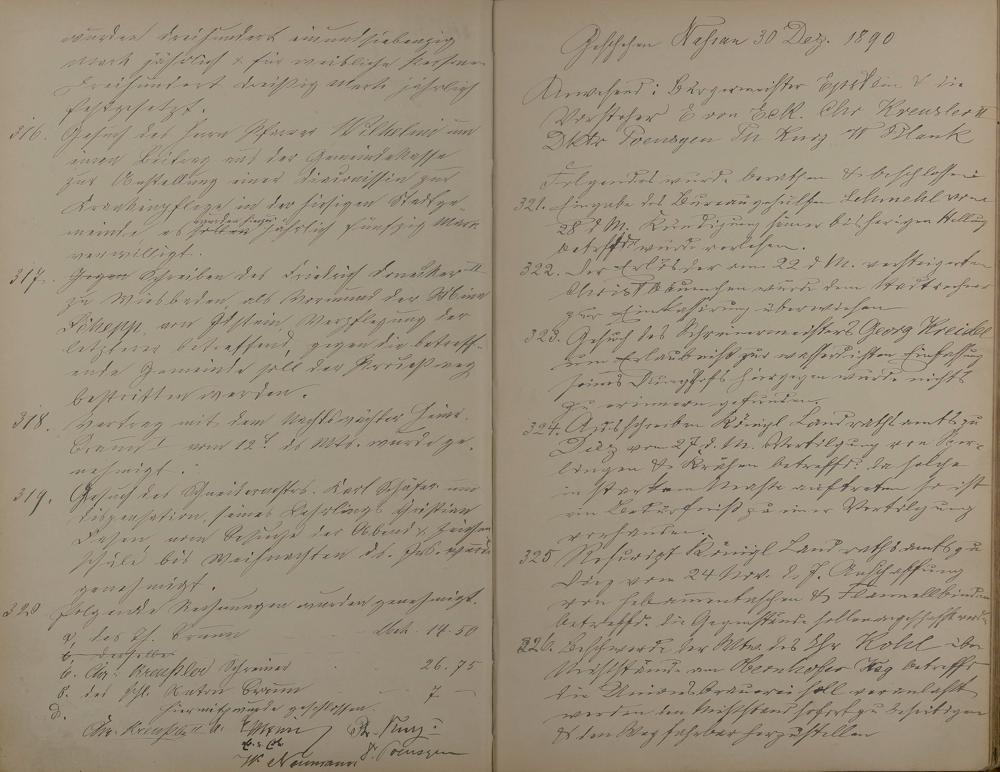 wurden dreihundert einundsiebenzig
Mark jährlich & für weibliche Personen
dreihundert dreißig Mark jährlich
festgesetzt.
316. Gesuch des Herrn Pfarrer Wilhelmi um
einen Beitrag aus der Gemeindekasse
zur Anstellung einer Diaconissin zur
Krankenpflege in der hiesigen Stadtge-
meinde es wurden hierzu jährlich fünfzig Mark
verwilligt.
317. Gegen Schreiben des Friedrich II
zu Wiesbaden, als Vormund der
von Idstein, Verpflegung der
letzterer betreffend, gegen die betreff-
ende Gemeinde soll der Prozeßweg
bestritten werden.
318. Vertrag mit dem Nachtswächter Heinr.
Braun I vom 12t. ds Mts. wurde ge-
nehmigt.
319. Gesuch des Schneidermstrs. Karl Schäfer um
Dispensation, seines Lehrlings Christian
vom Besuche der Abend &
Schule bis Weihnachten ds. Jrs. wurde
genehmigt.
320 Folgende Rechnungen wurden genehmigt.
a, des Th. Braun Mark 14.50
b derselbe
b. Chr. Kreußler Schreiner 26.75
c. des Phl. Anton Braun 7 —
d. Hiermit wurde geschlossen.
Chr. Kreußler II Th. Kurz
W. Neumann D. Poensgen
Geschehen Nassau 30 Dez. 1890
Anwesend: Bürgermeister & die
Vorsteher E von Eck. Chr Kreusler II
Dktr Poensgen Th Kurz W Plank
Folgendes wurde berathen & beschlossen
321. Eingabe des Bureaugehülfen Schmehl vom
28 d M. Kündigung seiner bisherigen Stellung
betrffd wurde verlesen.
322. Der Erlös der am 22 d M. versteigerten
Christbäumchen wurde dem Stadtrechner
zur Einkassirung überwiesen
323. Gesuch des Schreinermeisters Georg Kreidel
um Erlaubniß zur wasserdichten Einfassung
seines Dunghofs hiergegen wurde nichts
zu erinnern gefunden.
324. Ausschreiben Königl Landrathsamts zu
Diez vom 27 d. M. Vertilgung von Sper-
lingen & Krähen betreffd: da solche
in starkem Maße auftreten so ist
ein Bedürfniß zu einer Vertilgung
vorhanden.
325 Rescript Königl Landrathsamts zu
Diez vom 24 Nov. d. J. Anschaffung
von Hebammentaschen & Flanellbinden
betreffd. die Gegenstände sollen angeschafft werden
326. Beschwerde der Wtw. des Chr Kohl über
Mißstände am Obernhofer Weg betreffd
die Unionsbrauerei soll veranlaßt
werden den Mißstand sofort zu beseitigen
& den Weg fahrbar herzustellen